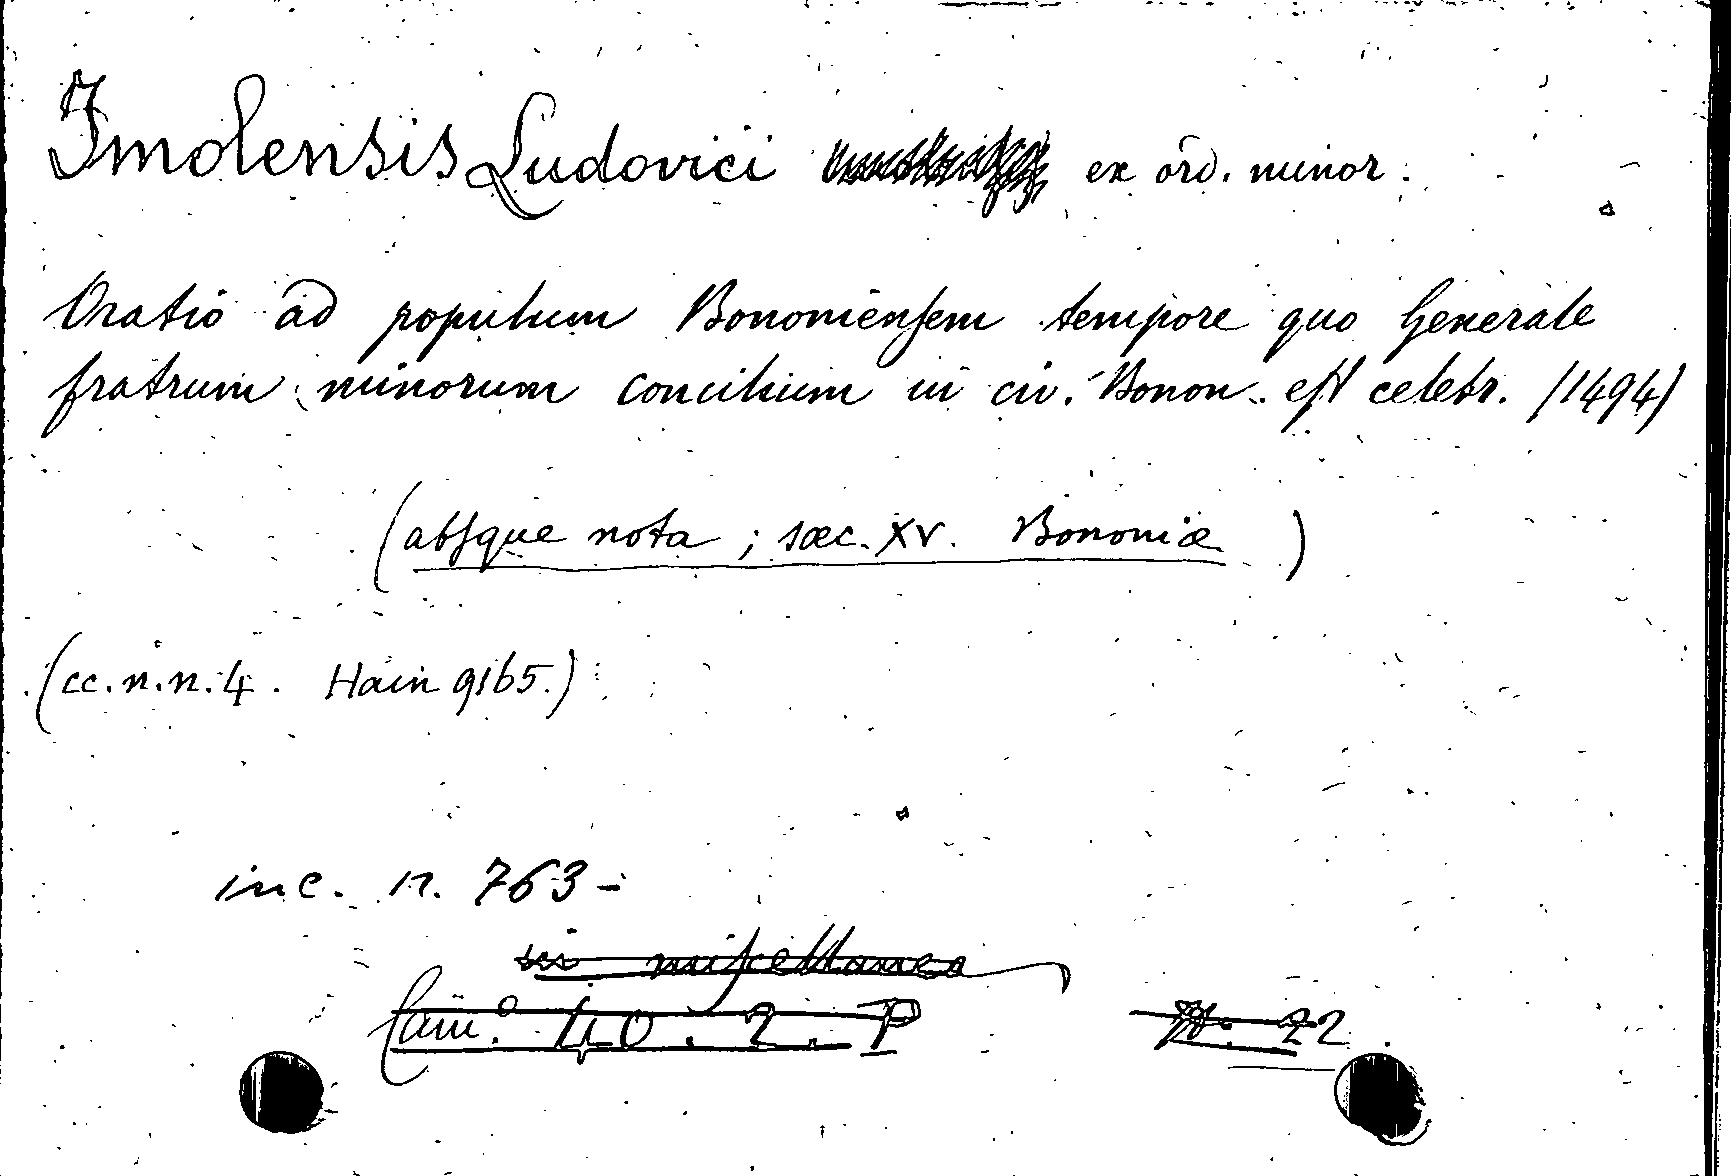 Imolensis Ludovici ex ord. minor.
Oratio ad populum Bononiensem tempore quo Generale
fratrum minorum concilium in civ. Bonon. est celebr. (1494)
(absque nota ; sæc. XV. Bononiæ)
(cc. n. n. 4. Hain 9165.)
inc. n. 763 -
in miscellanea
Cam.º 40. 2. P n. 22